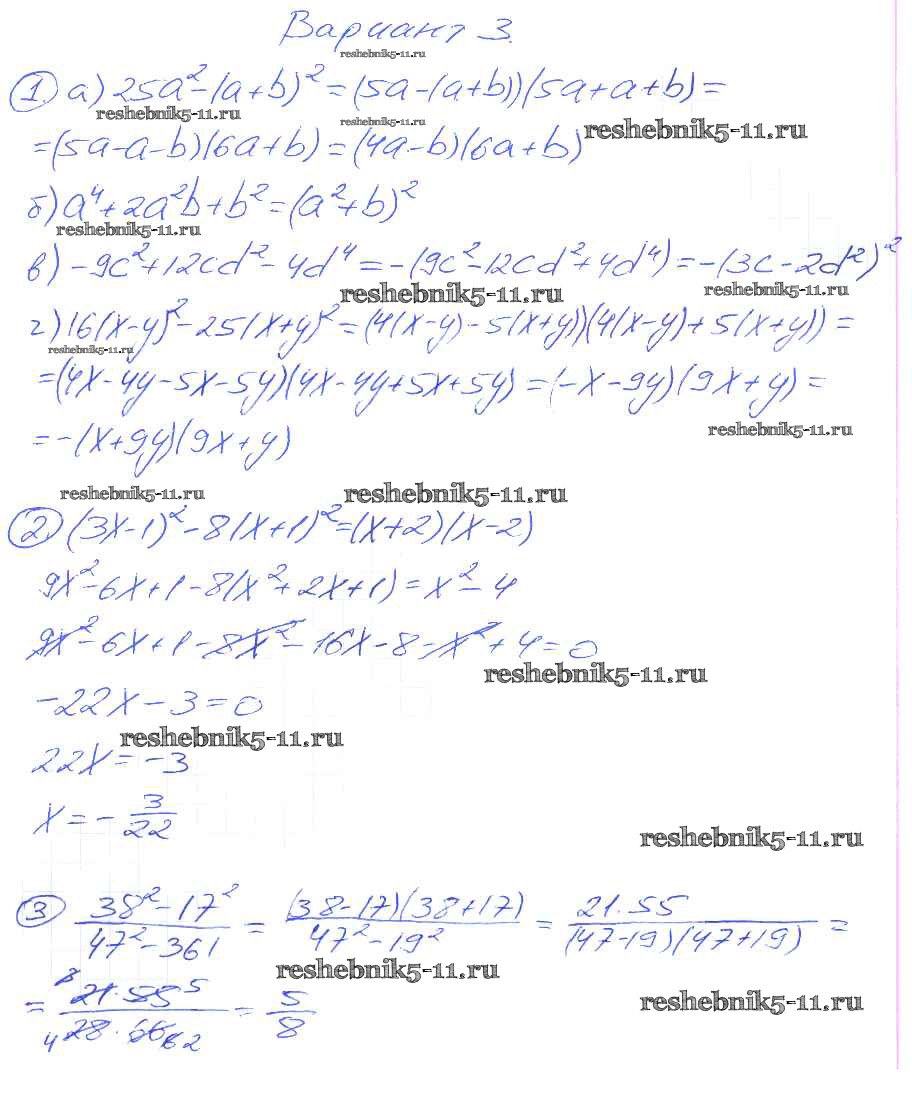 Вариант 3.
reshebnik5-11.ru
① а) 25a² - (a+b)² = (5a-(a+b))(5a+a+b) =
reshebnik5-11.ru reshebnik5-11.ru reshebnik5-11.ru
= (5a-a-b)(6a+b) = (4a-b)(6a+b)
б) a⁴+2a²b+b² = (a²+b)²
reshebnik5-11.ru
в) -9c²+12cd²-4d⁴ = -(9c²-12cd²+4d⁴) = -(3c-2d²)²
reshebnik5-11.ru reshebnik5-11.ru
г) 16(x-y)²-25(x+y)² = (4(x-y)-5(x+y))(4(x-y)+5(x+y)) =
reshebnik5-11.ru
= (4x-4y-5x-5y)(4x-4y+5x+5y) = (-x-9y)(9x+y) =
reshebnik5-11.ru
= -(x+9y)(9x+y)
reshebnik5-11.ru reshebnik5-11.ru
② (3x-1)²-8(x+1)² = (x+2)(x-2)
9x²-6x+1-8(x²+2x+1) = x²-4
9x²-6x+1-8x²-16x-8-x²+4=0
reshebnik5-11.ru
-22x-3=0
reshebnik5-11.ru
22x=-3
x = -3/22
reshebnik5-11.ru
③ (38²-17²)/(47²-361) = ((38-17)(38+17))/(47²-19²) = (21·55)/((47-19)(47+19)) =
reshebnik5-11.ru
reshebnik5-11.ru
= (21·55)/(28·66) = 5/8